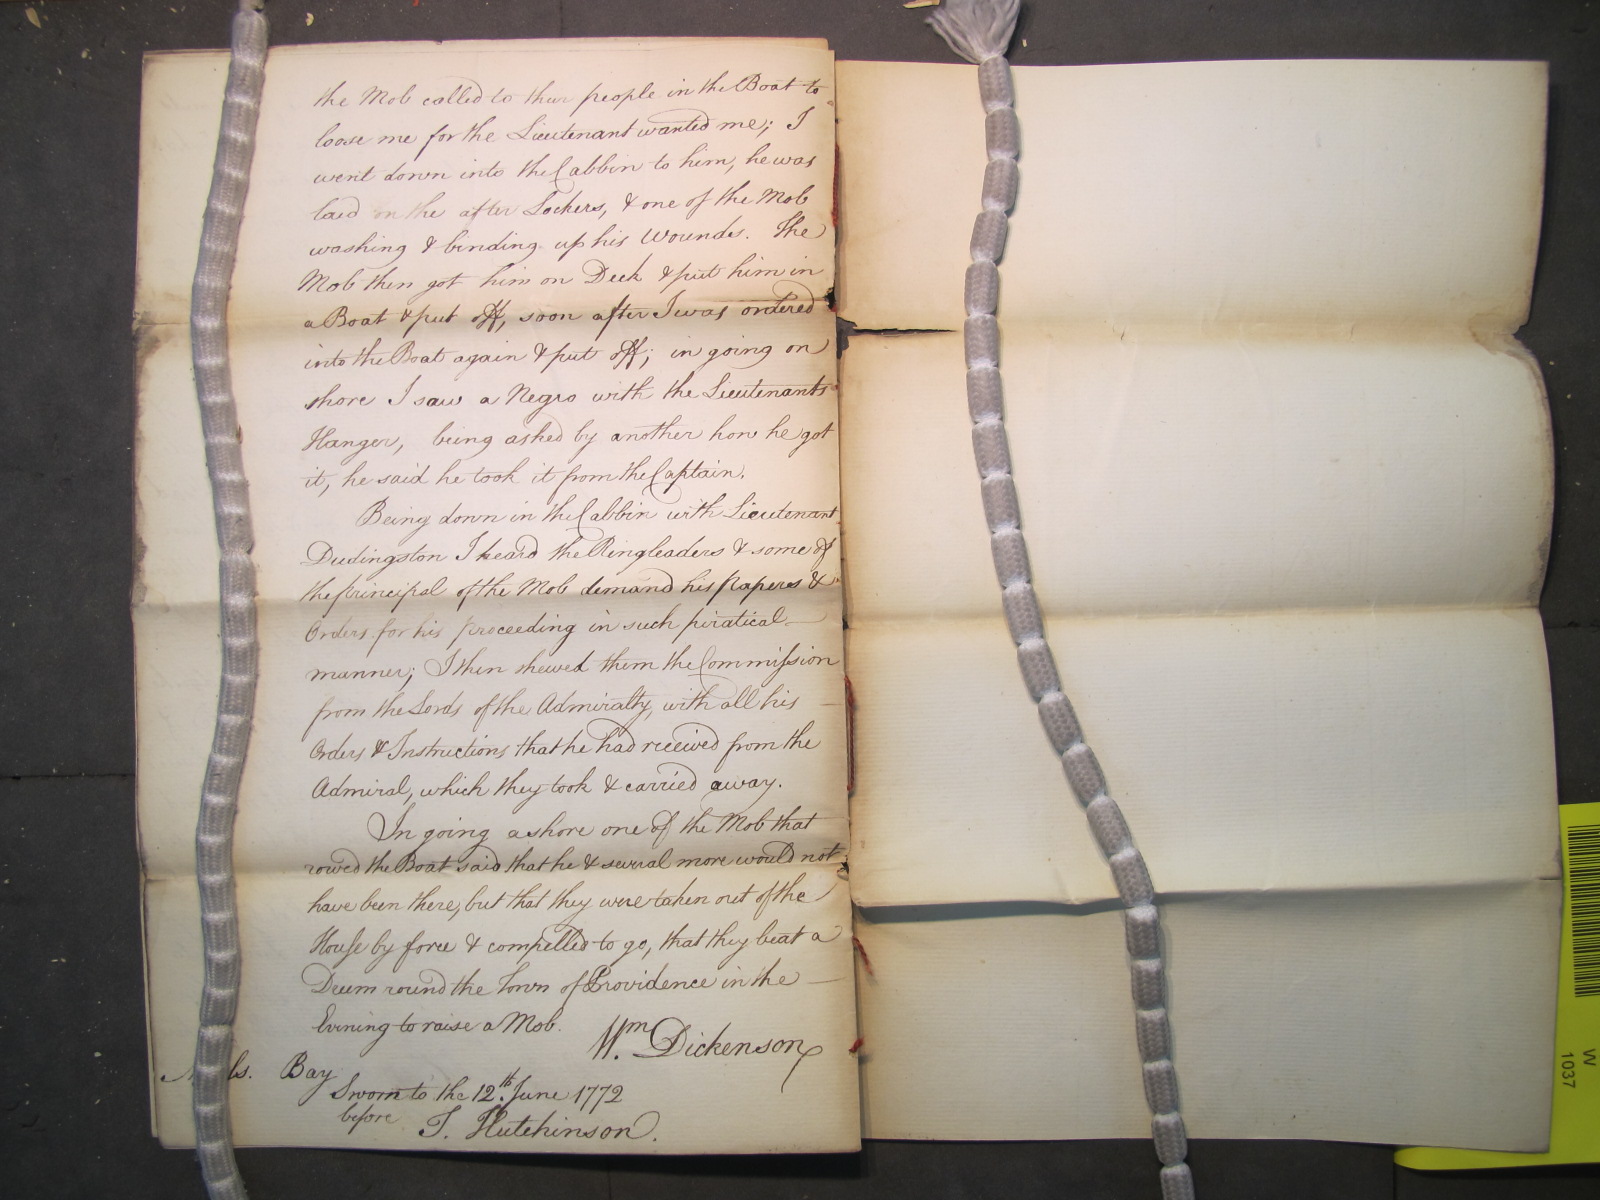 the Mob called to their people in the Boat to
loose me for the Lieutenant wanted me; I
went down into the Cabbin to him, he was
laid on the after Lockers, & one of the Mob
washing & binding up his Wounds. The
Mob then got him on Deck & put him in
a Boat & put off, soon after I was ordered
into the Boat again & put off; in going on
shore I saw a Negro with the Lieutenants
Hanger, being asked by another how he got
it, he said he took it from the Captain.
Being down in the Cabbin with Lieutenant
Dudingston I heard the Ringleaders & some of
the principal of the Mob demand his Papers &
Orders for his proceeding in such piratical
manner; I then shewed them the Commission
from the Lords of the Admiralty, with all his
Orders & Instructions that he had received from the
Admiral, which they took & carried away.
In going ashore one of the Mob that
rowed the Boat said that he & several more would not
have been there, but that they were taken out of the
House by force & compelled to go, that they beat a
Drum round the Town of Providence in the
Evening to raise a Mob.
Wm. Dickenson
Bay
Sworn to the 12th. June 1772
before
T. Hutchinson.
W
1037